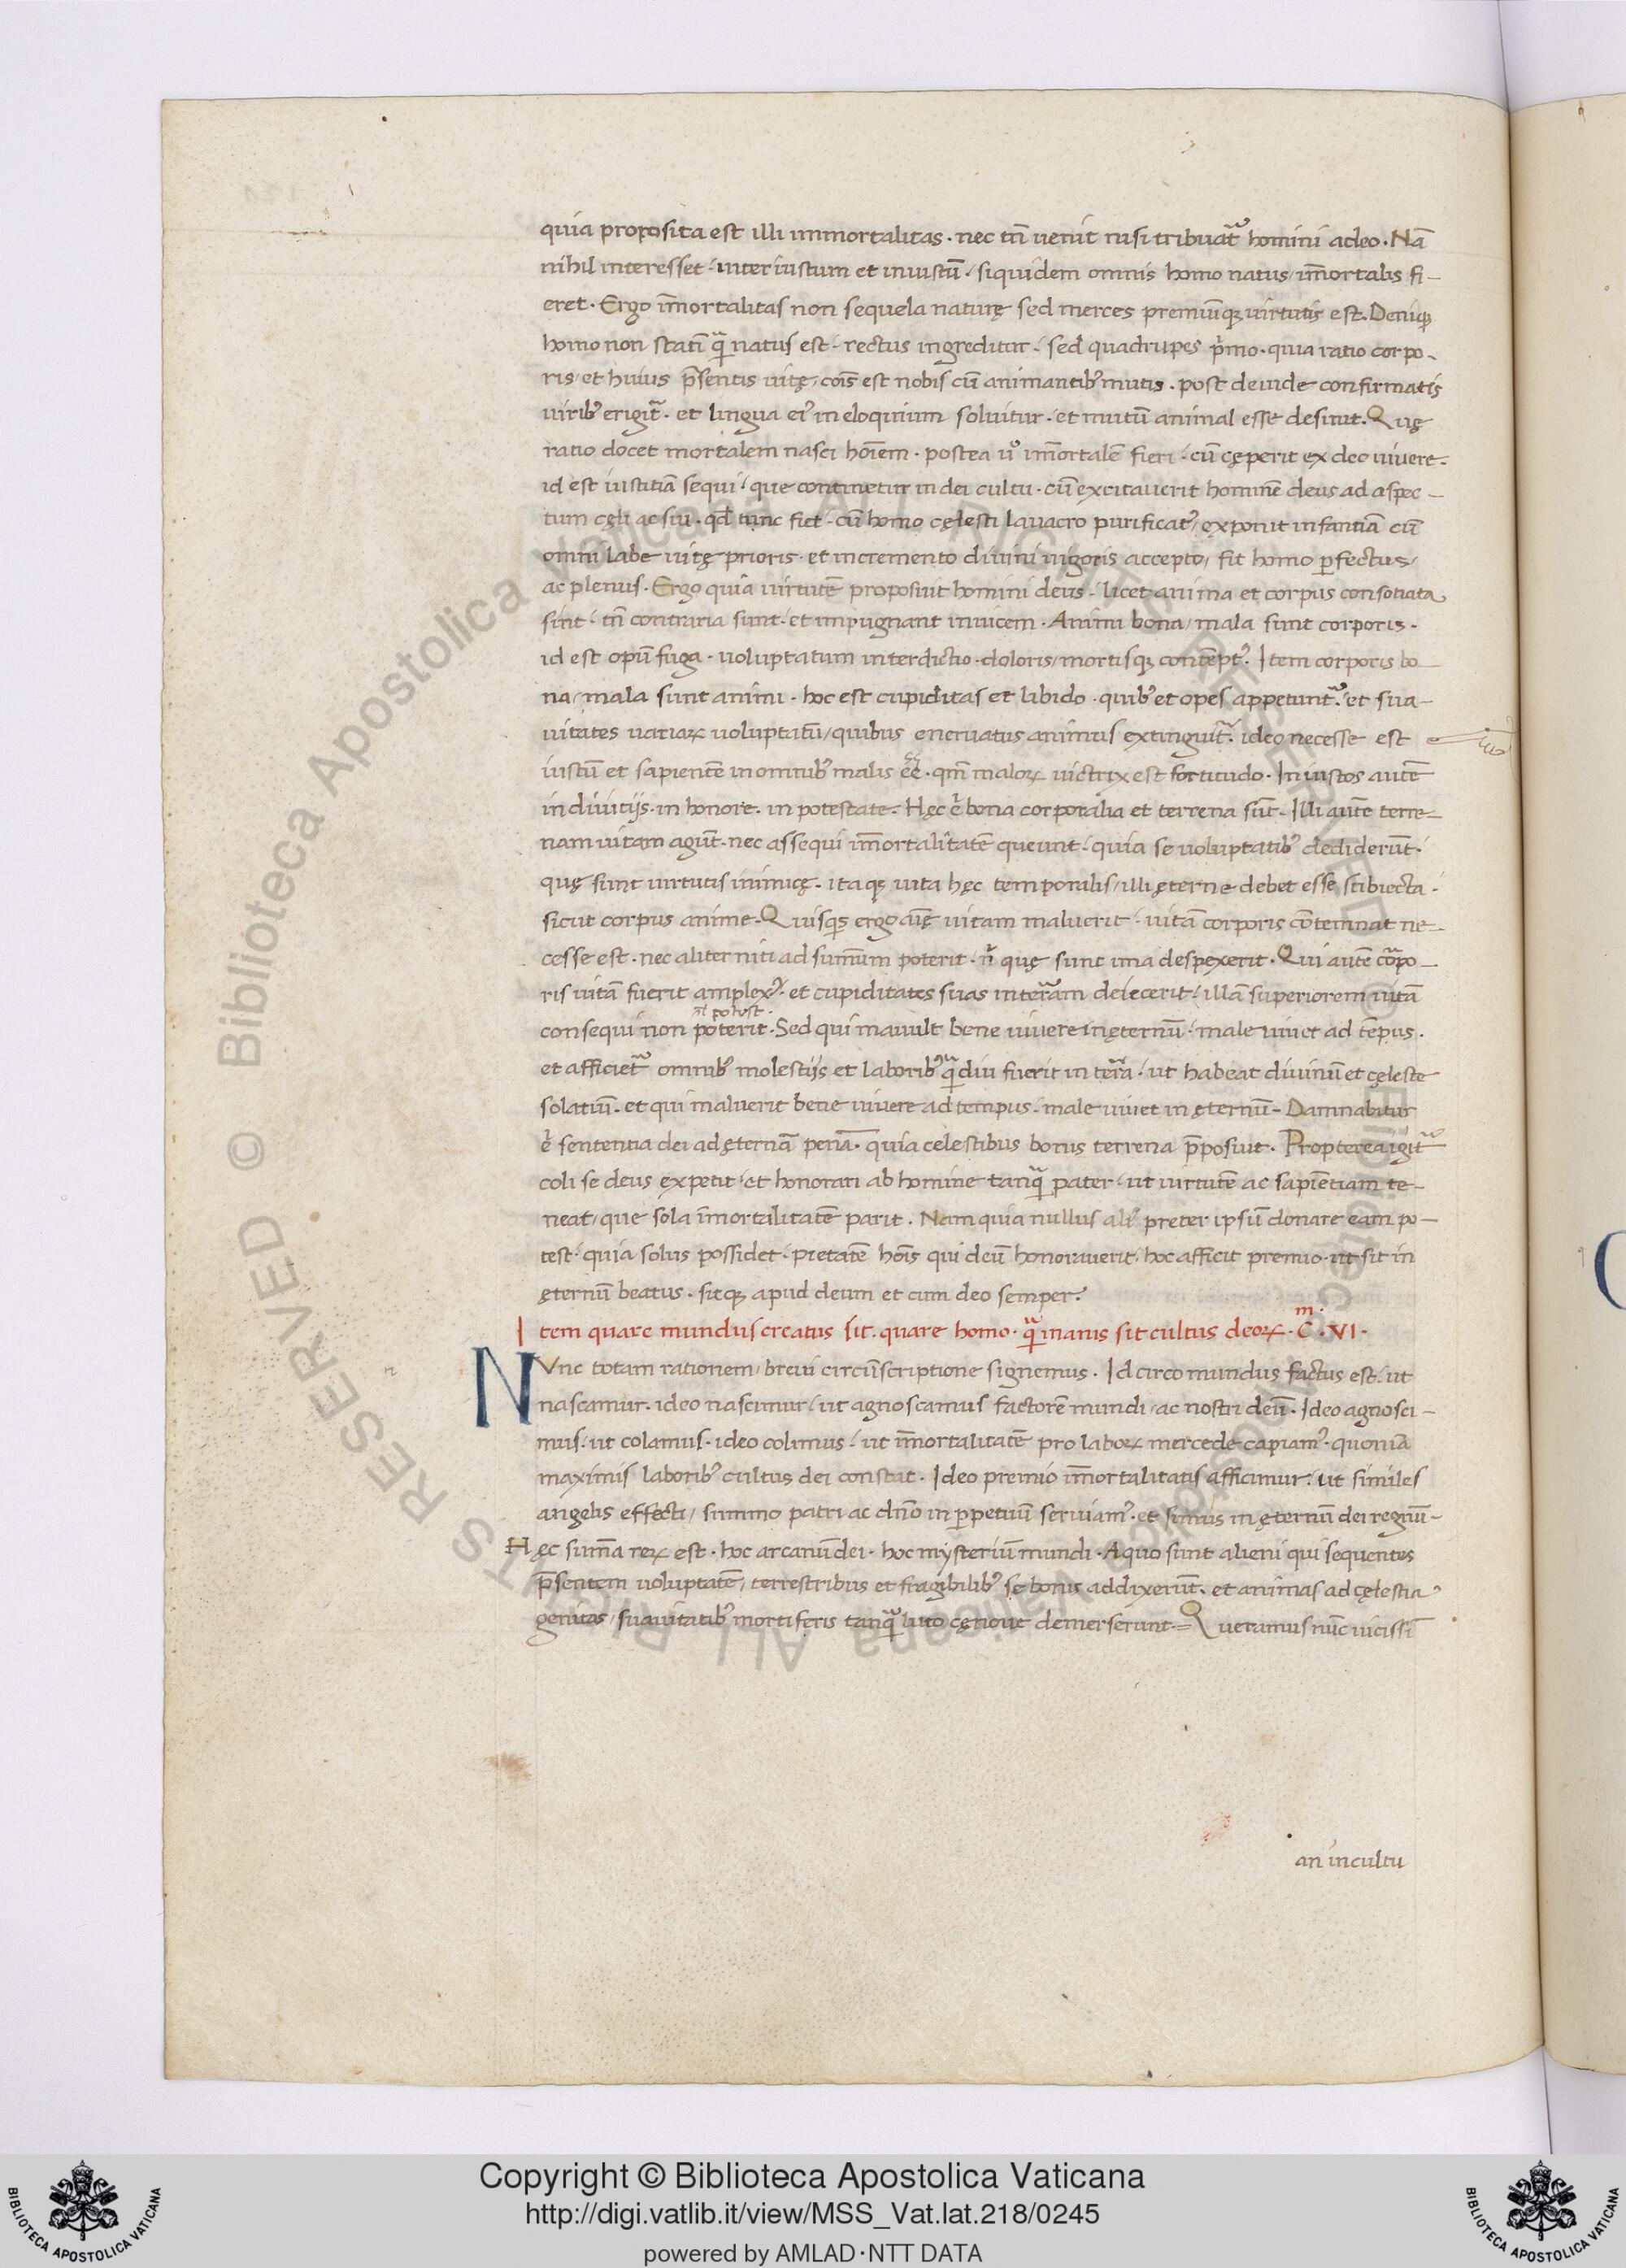 quia proposita est illi immortalitas · nec tñ uenit nisi tribuat᷑ homini adeo · Nā
nihil interesset · inter iustum et iniustū · siquidem omnis homo natus / īmortalis fi-
eret · Ergo īmortalitas non sequela naturę sed merces premiūq; uirtutis est. Deniq;
homo non statī qᷓ natus est · rectus ingreditur · sed quadrupes pͥmo · quia ratio corpo-
ris / et huius p̄sentis uitę / cōis est nobis cū animantibꝰ mutis · post deinde confirmatis
uiribꝰ erigit᷑ · et lingua eiꝰ in eloquium soluitur · et mutū animal esse desinit. Quę
ratio docet mortalem nasci hoīem · postea uͦ īmortalē fieri · cū cęperit ex deo uiuere ·
id est iustitiā sequi · que continetur in dei cultu · cū excitauerit hominē deus ad aspec-
tum cęli ac sui · qd̄ tunc fiet · cū homo cęlesti lauacro purificatꝰ / exponit infantiā cū
omni labe uitę prioris · et incremento diuini uigoris accepto / fit homo ꝑfectus /
ac plenus · Ergo quia uirtutē proposuit homini deus · licet anima et corpus consotiata
sint · tñ contraria sunt · et impugnant inuicem · Animi bona / mala sunt corporis ·
id est opū fuga · uoluptatum interdictio · doloris / mortisq; contēptꝰ · Item corporis bo-
na / mala sunt animi · hoc est cupiditas et libido · quibꝰ et opes appetunt᷑ · et sua-
uitates uariaꝝ uoluptatū / quibus eneruatus animus extinguit᷑ · ideo necesse est
iustū et sapientē in omnibꝰ malis eē · qm̄ maloꝝ uictrix est fortitudo · Iniustos autē
in diuitijs · in honore · in potestate · Hęc .n. bona corporalia et terrena sūt · Illi autē terre-
nam uitam agūt · nec assequi īmortalitatē queunt · quia se uoluptatibꝰ dediderūt ·
quę sunt uirtutis inimicę · itaq; uita hęc temporalis / illi ęterne debet esse subiecta ·
sicut corpus anime · Quisqͥs ergo aīę uitam maluerit · uitā corporis cōtemnat ne-
cesse est · nec aliter niti ad sum̄um poterit · nͥ quę sunt ima despexerit · Qui autē corpo-
ris uitā fuerit amplexꝰ · et cupiditates suas in terram deiecerit · illā superiorem uitā
al̄ potest ·
consequi non poterit · Sed qui mauult bene uiuere in ęternū · male uiuet ad tēpus ·
et afficiet᷑ omnibꝰ molestijs et laboribꝰ qᷓdiu fuerit in terra · ut habeat diuinū et cęleste
solatiū · et qui maluerit bene uiuere ad tempus · male uiuet in ęternū · Damnabitur
.n. sententia dei ad ęternā penā · quia celestibus bonis terrena p̄posuit · Propterea igit᷑
coli se deus expetit · et honorari ab homine tanqᷓ pater · ut uirtutē ac sapiētiam te-
neat / que sola īmortalitatē parit · Nam quia nullus aliꝰ preter ipsū donare eam po-
test · quia solus possidet · pietatē hoīs qui deū honorauerit · hoc afficit premio · ut sit in
ęternū beatus · sitq; apud deum et cum deo semper ·
Item quare mundus creatus sit · quare homo · qᷓ inanis sit cultus deoꝝ · Cᵐ · VI ·
NVnc totam rationem / breui circūscriptione signemus · Idcirco mundus factus est · ut
nascamur · ideo nascimur · ut agnoscamus factorē mundi / ac nostri deū · Ideo agnosci-
mus · ut colamus · ideo colimus · ut īmortalitatē pro laboꝝ mercede capiamꝰ · quoniā
maximis laboribꝰ cultus dei constat · Ideo premio īmortalitatis afficimur · ut similes
angelis effecti / summo patri ac dn̄o in ꝑpetuū seruiamꝰ · et simus in ęternū dei regnū ·
Hęc sum̄a reꝝ est · hoc arcanū dei · hoc mysteriū mundi · A quo sunt alieni qui sequentes
p̄sentem uoluptatē / terrestribus et fragibilibꝰ se bonis addixerūt · et animas ad cęlestia
genitas / suauitatibꝰ mortiferis tanqᷓ luto / cęnoue demerserunt · Queramus nūc uicissī
an incultu
Copyright © Biblioteca Apostolica Vaticana
http://digi.vatlib.it/view/MSS_Vat.lat.218/0245
powered by AMLAD·NTT DATA
BIBLIOTECA APOSTOLICA VATICANA
BIBLIOTECA APOSTOLICA VATICANA